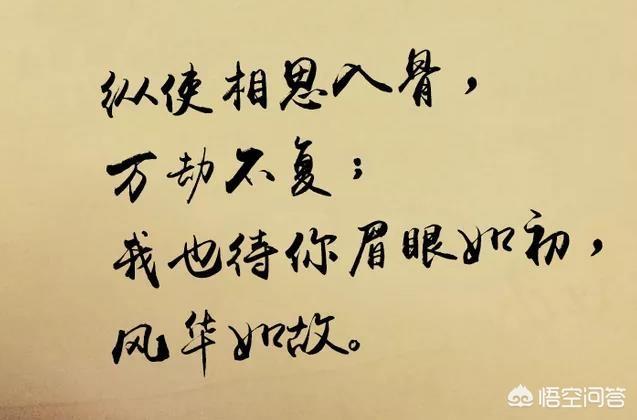 纵使相思入骨，
万劫不复；
我也待你眉眼如初，
风华如故。
悟空问答